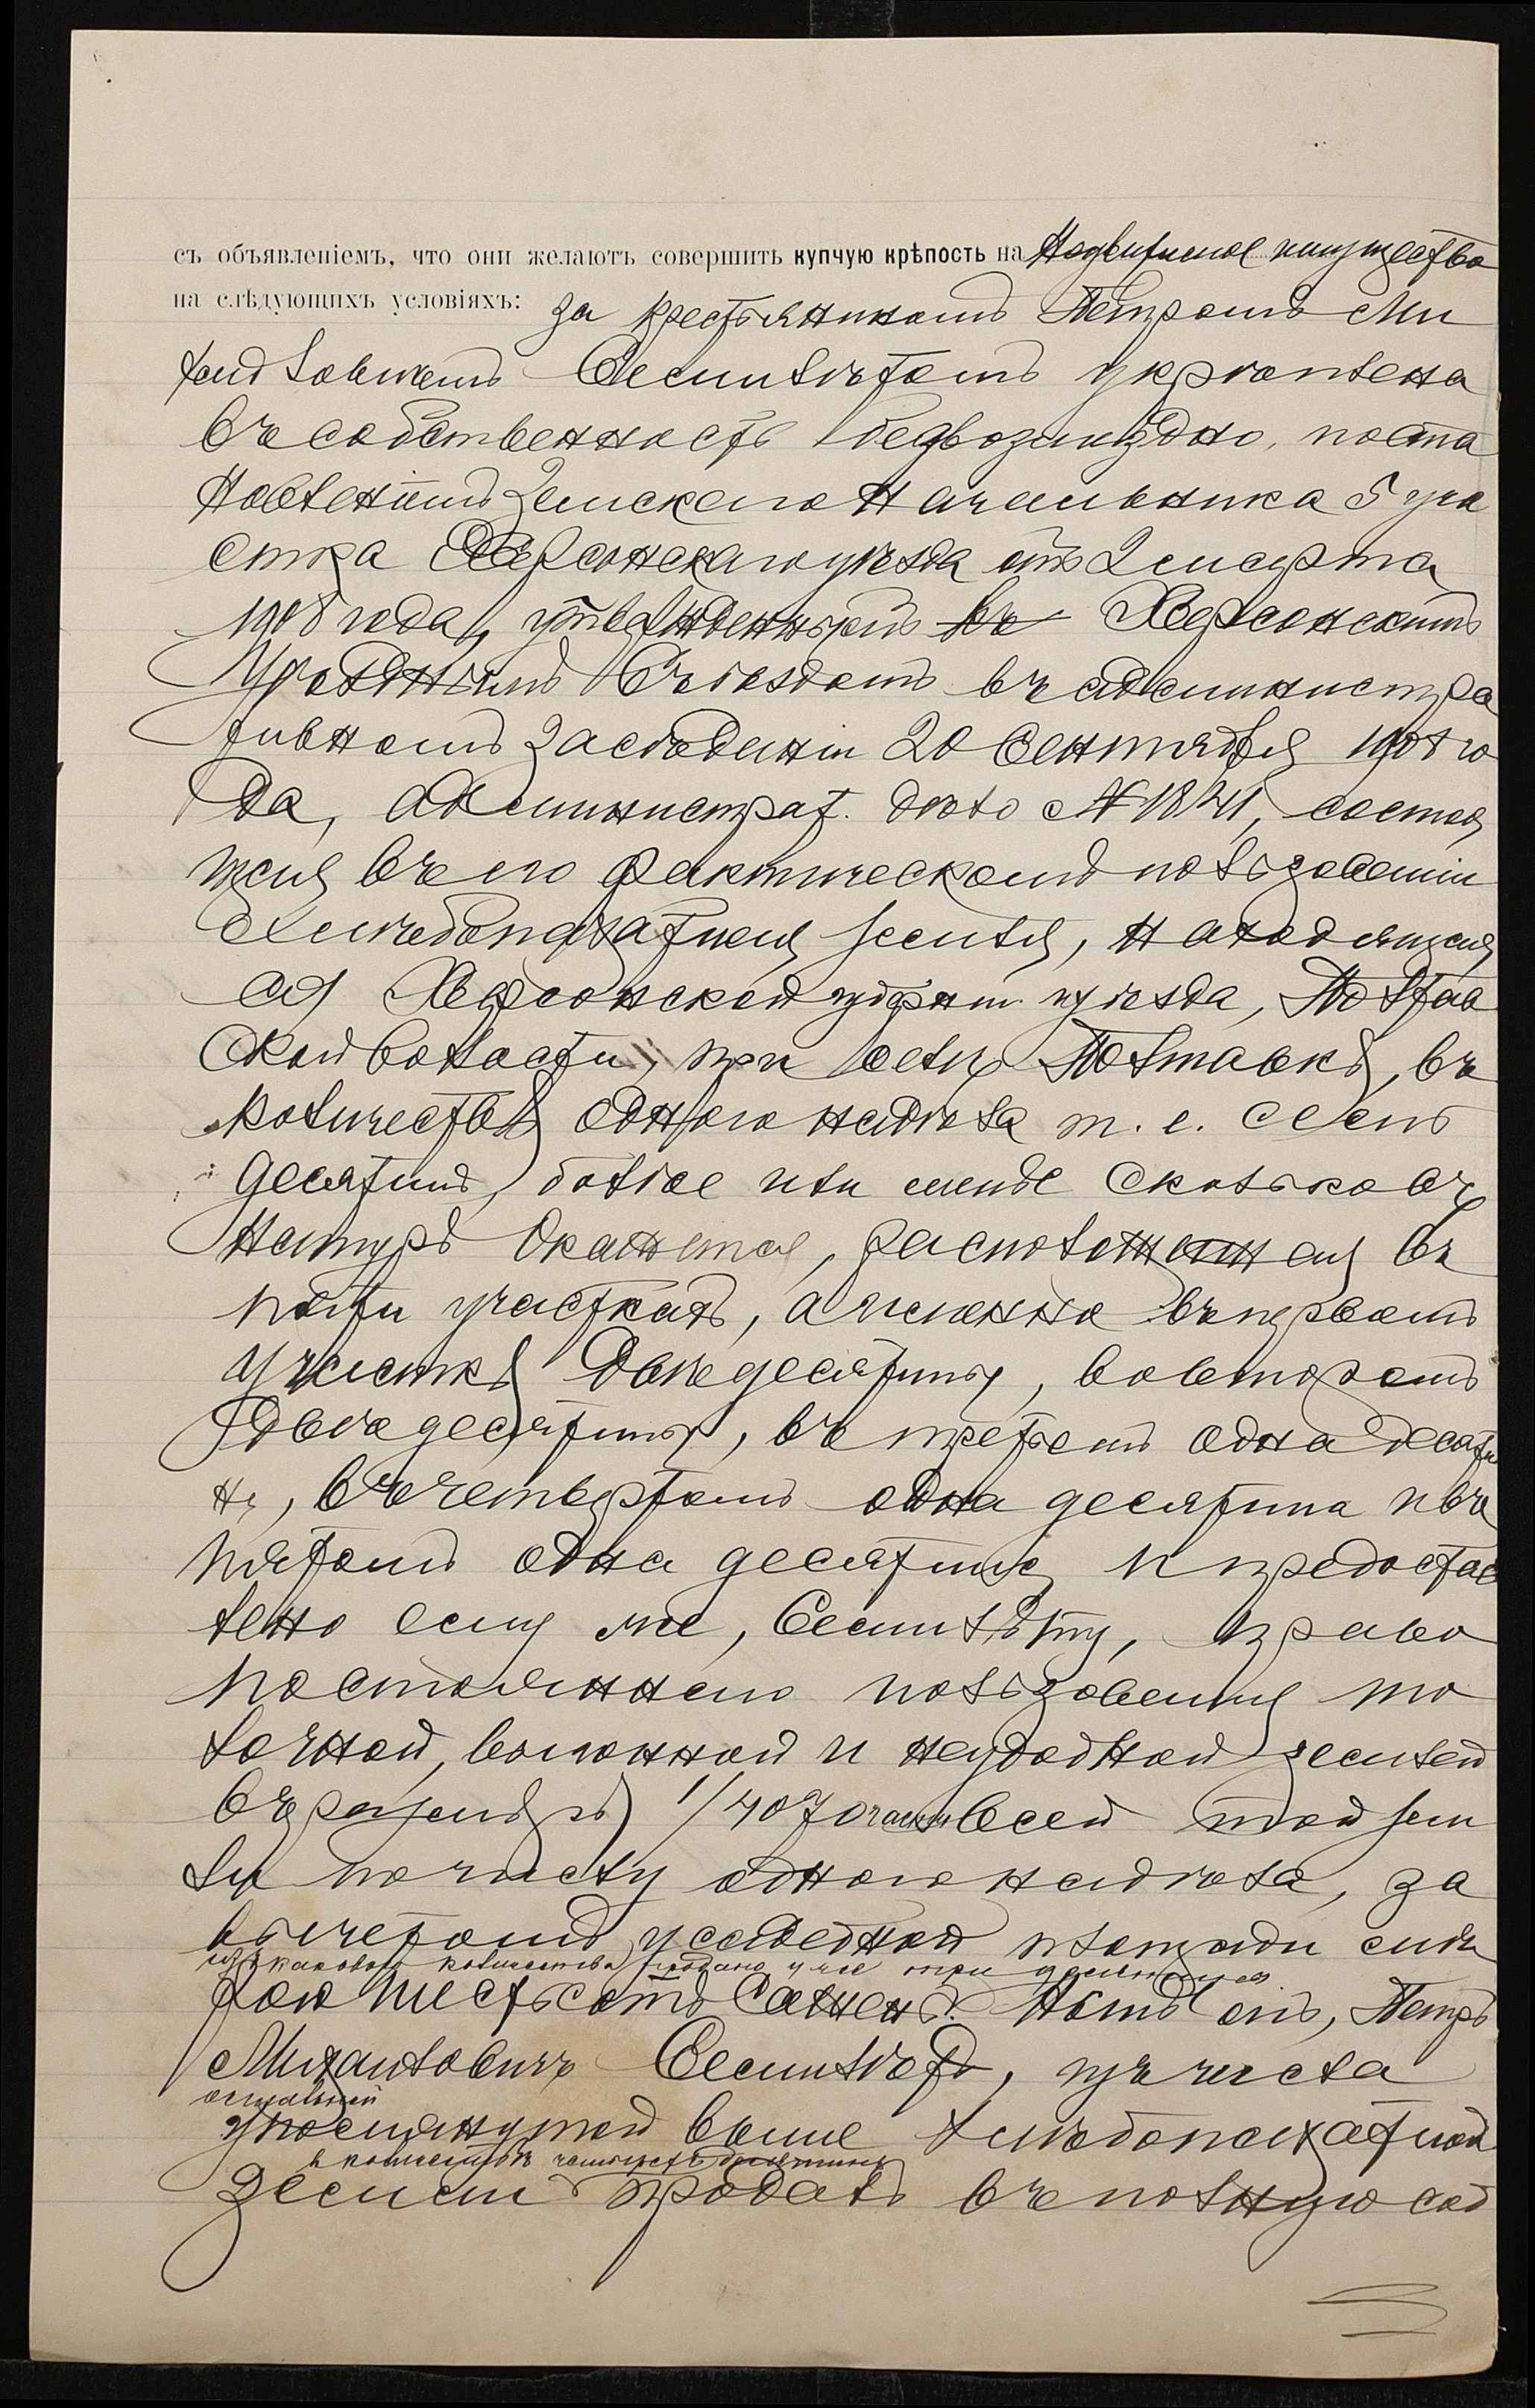 съ объявленіемъ, что они желаютъ совершить купчую крѣпость на Недвижимое имущество
на слѣдующихъ условіяхъ: за крестьяниномъ Петромъ Ми
хайловымъ Семилѣтомъ укрѣплена
въ собственность безвозмездно, поста
новленіемъ Земскаго Начальника 5 уча
стка Херсонскаго уѣзда отъ 2 марта
1908 года, утвержденнымъ Херсонскимъ
Уѣзднымъ Съѣздомъ въ администра
тивномъ засѣданіи 20 Сентября 1908 го
да, администрат. дѣло № 1841, состоя
щая въ его фактическомъ пользованіи
хлѣбопахатная земля, находящая
ся Херсонской губерніи уѣзда, Полтав
ской волости, при селѣ Полтавкѣ, въ
количествѣ одного надѣла т. е. семь
десятинъ, болѣе или менѣе сколько въ
натурѣ окажется, расположенная въ
пяти участкахъ, а именно въ первомъ
участкѣ двѣ десятины, во второмъ
двѣ десятины, въ третьемъ одна десяти
на, въ четвертомъ одна десятина и въ
пятомъ одна десятина и предостав
лено ему же, Семилѣту, право
постояннаго пользованія то
лочной, выгонной и неудобной землей
въ размѣрѣ 1/407 части всей той зем
ли по числу одного надѣла, за
вычетомъ усадебной площади
изъ каковаго количества продано уже три десятины
шестьсотъ сажень. Нынѣ онъ, Петръ
Михайловичъ Семилѣтъ, изъ числа
остальной
упомянутой выше хлѣбопахатной
в количествѣ четырехъ десятинъ
земли продалъ въ полную соб